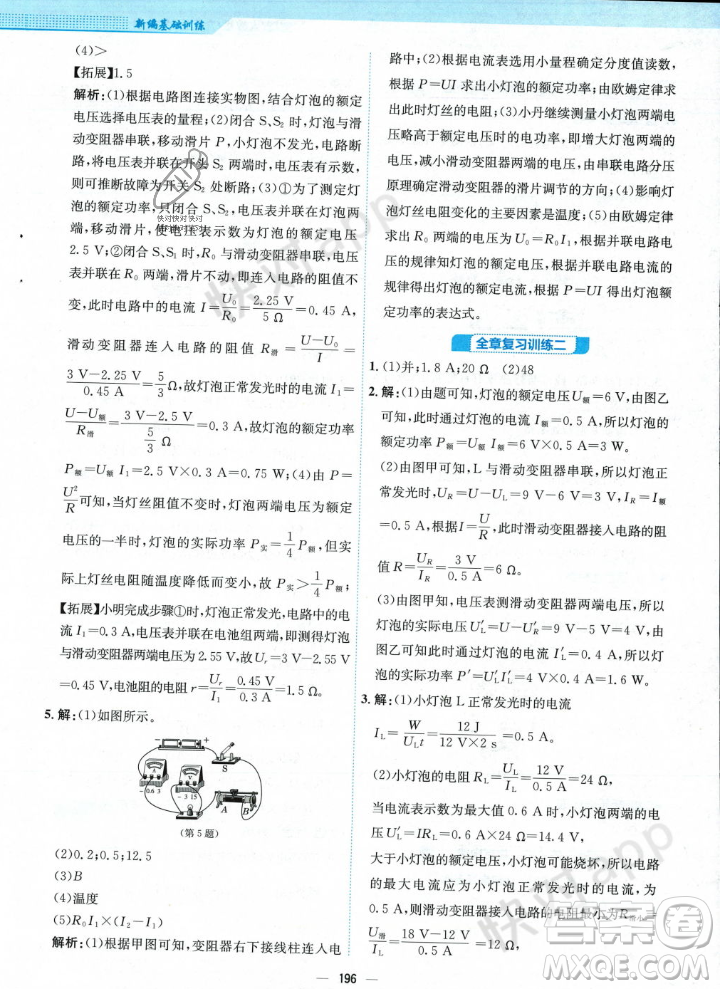 新编基础训练
(4)>
【拓展】1.5
解析:(1)根据电路图连接实物图,结合灯泡的额
定电压选择电压表的量程;(2)闭合 S、S₂ 时,灯泡与滑
动变阻器串联,移动滑片 P,小灯泡不发光,电路断
路,将电压表并联在开关 S₂ 两端时,电压表有示数,
则可推断故障为开关 S₂ 处断路;(3)①为了测量小灯
泡的额定功率,只闭合 S、S₂,电压表并联在灯泡两
端,移动滑片,使电压表示数为灯泡的额定电压
2.5 V;②闭合 S、S₁ 时,R₀ 与滑动变阻器串联,电压
表并联在 R₀ 两端,滑片不动,即连入电路的阻值不
变,此时电路中的电流 I=U₀/R₀=2.25 V/5 Ω=0.45 A,
滑动变阻器连入电路的阻值 R滑=(U-U₀)/I=
(3 V-2.25 V)/0.45 A=5/3 Ω;故灯泡正常发光时的电流 I₁=
(U-U额)/R滑=(3 V-2.5 V)/(5/3 Ω)=0.3 A,故灯泡的额定功率
P额=U额 I₁=2.5 V×0.3 A=0.75 W;(4)由 P=
U²/R可知,当灯丝阻值不变时,灯泡两端电压为额定
电压的一半时,灯泡的实际功率 P实=1/4 P额,但实
际上灯丝电阻随温度降低而变小,故 P实>1/4 P额。
【拓展】小明完成步骤①时,灯泡正常发光,电路中的电
流 I₁=0.3 A,电压表并联在电池组两端,即测出灯泡
与滑动变阻器两端电压为 2.55 V,故 Uᵣ=3 V-2.55 V
=0.45 V,电池组的内阻 r=Uᵣ/I₁=0.45 V/0.3 A=1.5 Ω。
5. 解:(1)如图所示。
S
-0.6 3
-3 15
A
B
(第 5 题)
(2)0.2;0.5;12.5
(3)B
(4)温度
(5)R₀I₁×(I₂-I₁)
解析:(1)根据甲图可知,变阻器右下接线柱连入电
路中;(2)根据电流表选用小量程确定分度值读数,
根据 P=UI 求出小灯泡的额定功率;由欧姆定律求
出此时灯丝的电阻;(3)小丹继续测量小灯泡两端电
压略高于额定电压时的电功率,即增大灯泡两端的
电压,减小滑动变阻器两端的电压,由串联电路分压
原理确定滑动变阻器的滑片调节的方向;(4)影响灯
泡灯丝电阻变化的主要因素是温度;(5)由欧姆定律
求出 R₀ 两端的电压为 U₀=R₀I₁,根据并联电路电压
的规律知灯泡的额定电压,根据并联电路电流的
规律得出灯泡的额定电流,根据 P=UI 得出灯泡额
定功率的表达式。
全章复习训练二
1. (1)并;1.8 A;20 Ω (2)48
2. 解:(1)由题可知,灯泡的额定电压 U额=6 V,由图乙
可知,此时通过灯泡的电流 I额=0.5 A,所以灯泡的
额定功率 P额=U额I额=6 V×0.5 A=3 W
(2)由图甲可知,L 与滑动变阻器串联,所以灯泡正
常发光时,U_R=U-U_L=9 V-6 V=3 V,I_R=I额
=0.5 A,根据I=U/R,此时滑动变阻器接入电路的阻
值 R=U_R/I_R=3 V/0.5 A=6 Ω
(3)由图甲可知,电压表测滑动变阻器两端电压,所以
灯泡的实际电压 U′_L=U-U′_R=9 V-5 V=4 V,由
图乙可知此时通过灯泡的电流 I′_L=0.4 A,所以灯
泡的实际功率 P′=U′_LI′_L=4 V×0.4 A=1.6 W
3. 解:(1)小灯泡 L 正常发光时的电流
I_L=W/(U_Lt)=12 J/(12 V×2 s)=0.5 A。
(2)小灯泡的电阻 R_L=U_L/I_L=12 V/0.5 A=24 Ω,
当电流表示数为最大值 0.6 A 时,小灯泡两端的电
压为 U′_L=IR_L=0.6 A×24 Ω=14.4 V,
大于小灯泡的额定电压,小灯泡可能烧坏,所以电路
的最大电流应为小灯泡正常发光时的电流
0.5 A,则滑动变阻器接入电路的电阻最小为 R滑小=
196
快对app
快对app